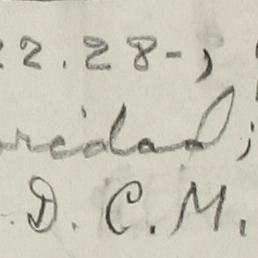 22.28-,
aridad;
D. C. M.